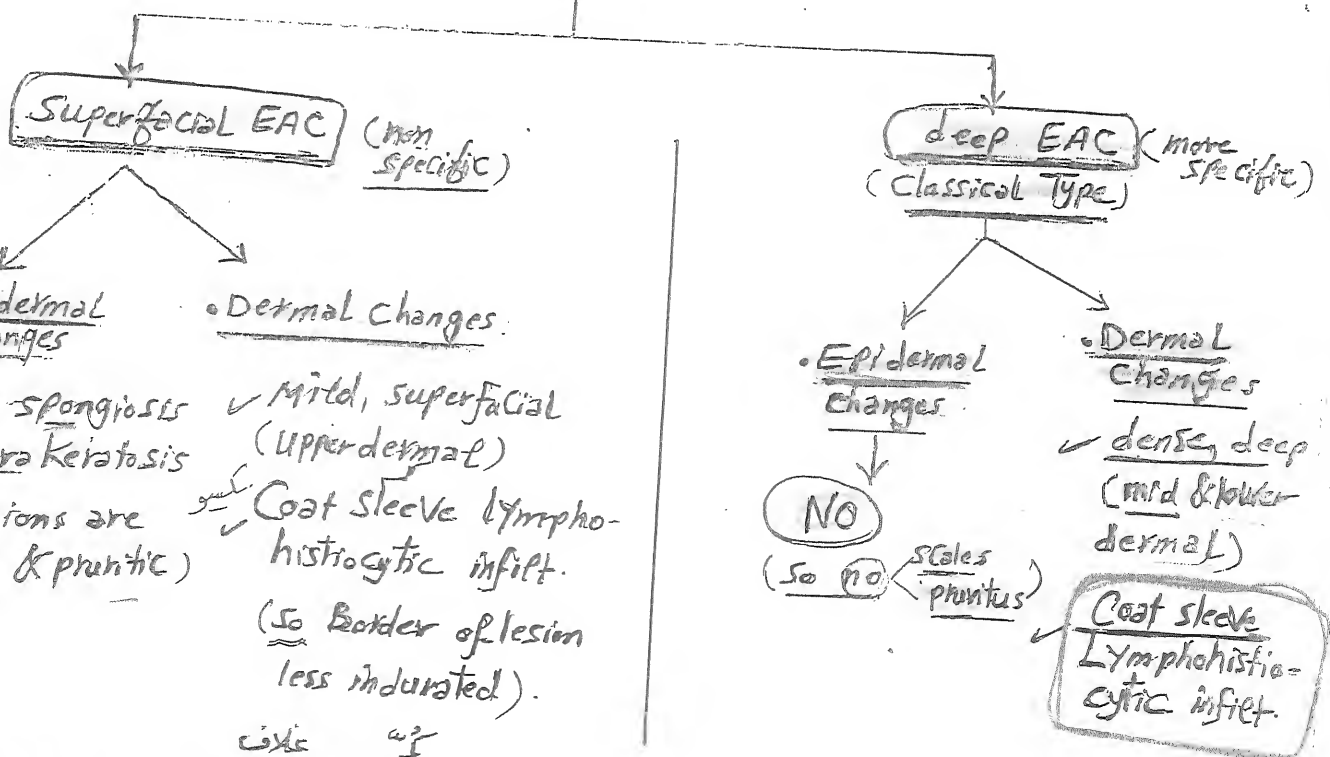 Superfacial EAC
(non
specific)
dermal
nges
spongiosis
ra keratosis
ions are
& pruritic)
• Dermal Changes.
✓ Mild, superfacial
(upper dermal)
✓ Coat Sleeve lympho-
histiocytic infilt.
(So Border of lesion
less indurated).
غلاف
deep EAC (more
specific)
(Classical Type)
• Epidermal
changes
NO
(So no scales
pruritus)
• Dermal
Changes
✓ dense, deep
(mid & lower
dermal)
✓ Coat sleeve
Lymphohistio-
cytic infilt.